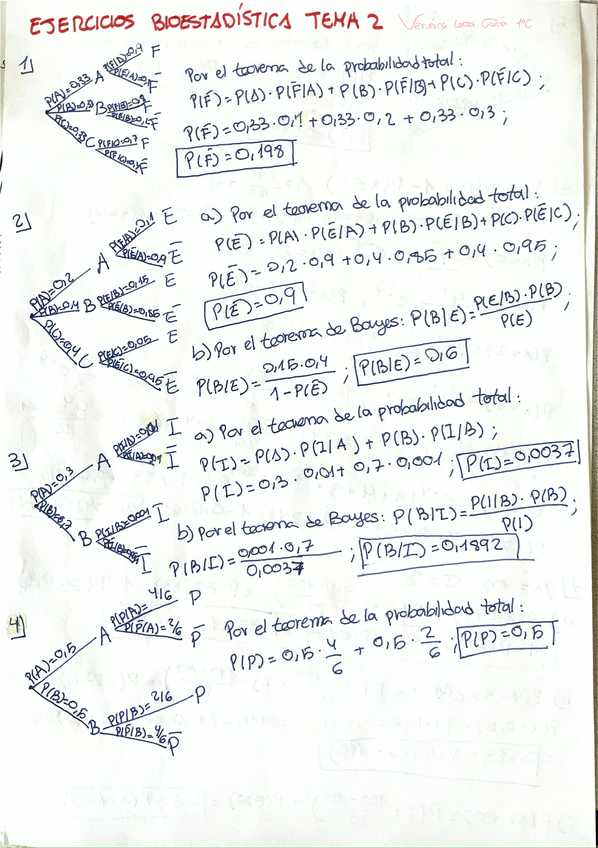 EJERCICIOS BIOESTADÍSTICA TEMA 2 Verónica
1)
P(A)=0,33 A P(F/A)=0,9 F
F̄
P(B)=0,33 B F
F̄
P(C)=0,33 C P(F/C)=0,7 F
F̄
Por el teorema de la probabilidad total:
P(F̄)=P(A)·P(F̄/A)+P(B)·P(F̄/B)+P(C)·P(F̄/C);
P(F̄)=0,33·0,1+0,33·0,2+0,33·0,3;
P(F̄)=0,198
2)
P(A)=0,2 A P(E/A)=0,1 E
P(Ē/A)=0,9 Ē
P(B)=0,4 B P(E/B)=0,15 E
P(Ē/B)=0,85 Ē
P(C)=0,4 C P(E/C)=0,05 E
P(Ē/C)=0,95 Ē
a) Por el teorema de la probabilidad total:
P(Ē)=P(A)·P(Ē/A)+P(B)·P(Ē/B)+P(C)·P(Ē/C);
P(Ē)=0,2·0,9+0,4·0,85+0,4·0,95;
P(Ē)=0,9
b) Por el teorema de Bayes: P(B/E)=P(E/B)·P(B)/P(E);
P(B/E)=0,15·0,4/1-P(Ē); P(B/E)=0,6
3)
P(A)=0,3 A I
Ī
P(B)=0,7 B P(I/B)=0,001 I
Ī
a) Por el teorema de la probabilidad total:
P(I)=P(A)·P(I/A)+P(B)·P(I/B);
P(I)=0,3·0,01+0,7·0,001; P(I)=0,0037
b) Por el teorema de Bayes: P(B/I)=P(I/B)·P(B)/P(I);
P(B/I)=0,001·0,7/0,0037; P(B/I)=0,1892
4)
P(A)=0,5 A P(P/A)=4/6 P
P(P̄/A)=2/6 P̄
P(B)=0,5 B P(P/B)=2/6 P
P(P̄/B)=4/6 P̄
Por el teorema de la probabilidad total:
P(P)=0,5·4/6+0,5·2/6; P(P)=0,5